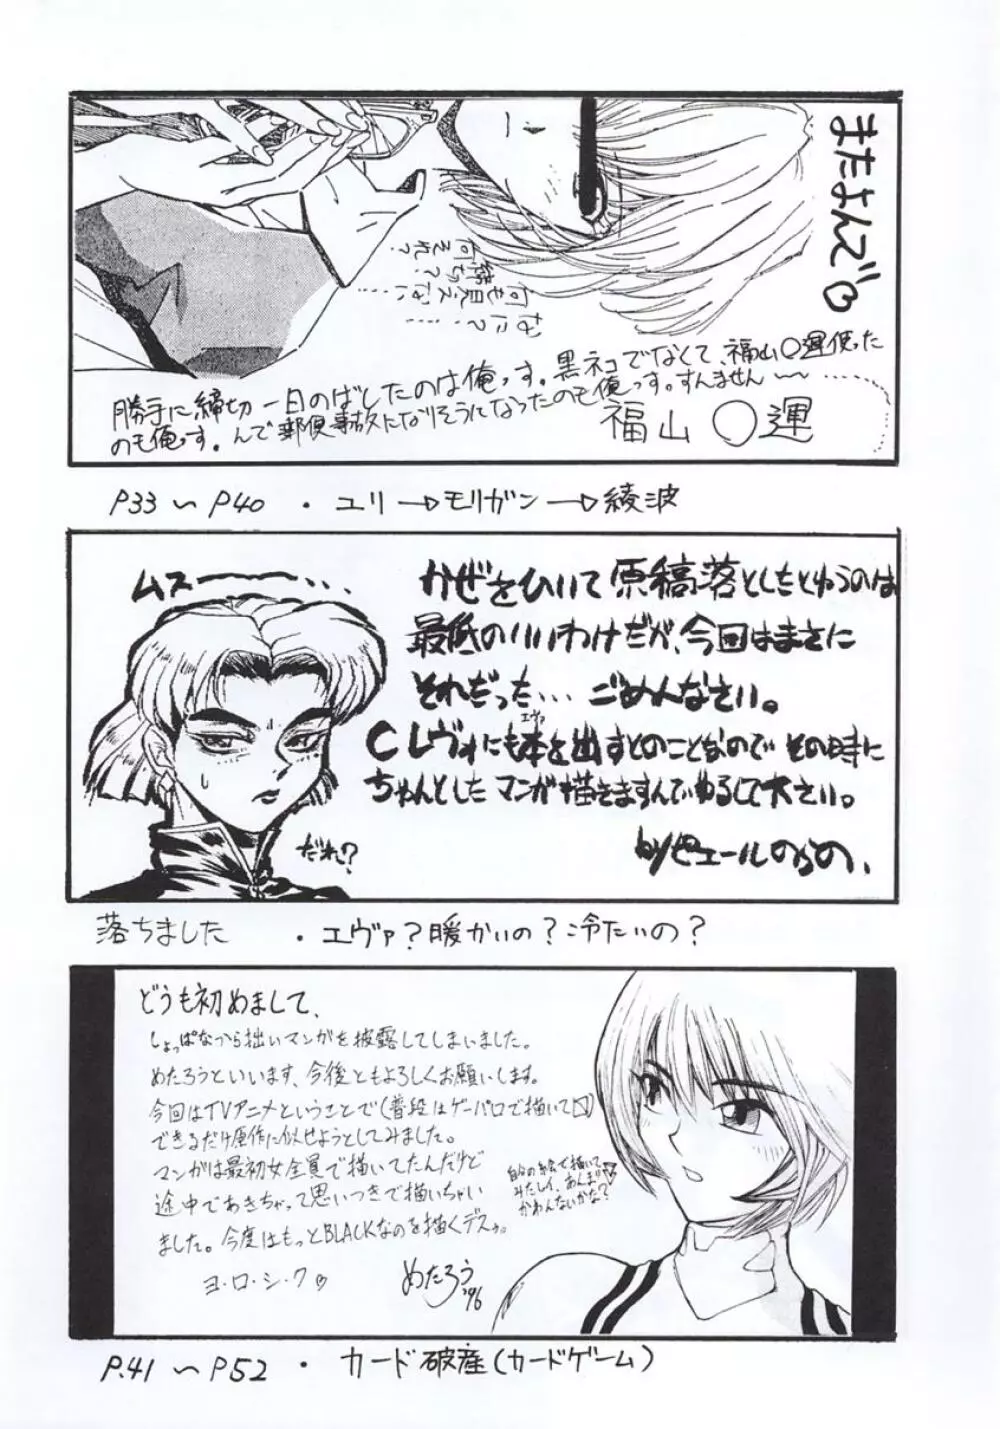 またよんで♡
何それ?
締切?
何も見えない……
なに?……
勝手に締切一日のばしたのは俺っす。黒ネコでなくて、福山○運使った
のも俺っす。んで郵便事故になりそうになったのも俺っす。すんません〜〜……
福山○運
P33 〜 P40 ・ ユリ→モリガン→綾波
ムスーー・・
かぜをひいて原稿落としたとゆうのは
最低のいいわけだが、今回はまさに
それだった… ごめんなさい。
Cレヴォにも本を出すとのことなので その時に
エヴァ
ちゃんとしたマンガ描きますんでゆるして下さい。
だれ?
落ちました ・ エヴァ?暖かいの?冷たいの?
どうも初めまして、
しょっぱなから拙いマンガを披露してしまいました。
めたろうといいます、今後ともよろしくお願いします。
今回はTVアニメということで(普段はゲーパロで描いて
できるだけ原作に似せようとしてみました。
マンガは最初女全員で描いてたんだけど
途中であきちゃって思いつきで描いちゃい
ました。今度はもっとBLACKなのを描くデスぅ。
自分の絵で描いて
みたしィ、あんまり
かわんないかな?
ヨ・ロ・シ・ク♡
めたろう
'96
P.41 〜 P52 ・ カード破産(カードゲーム)